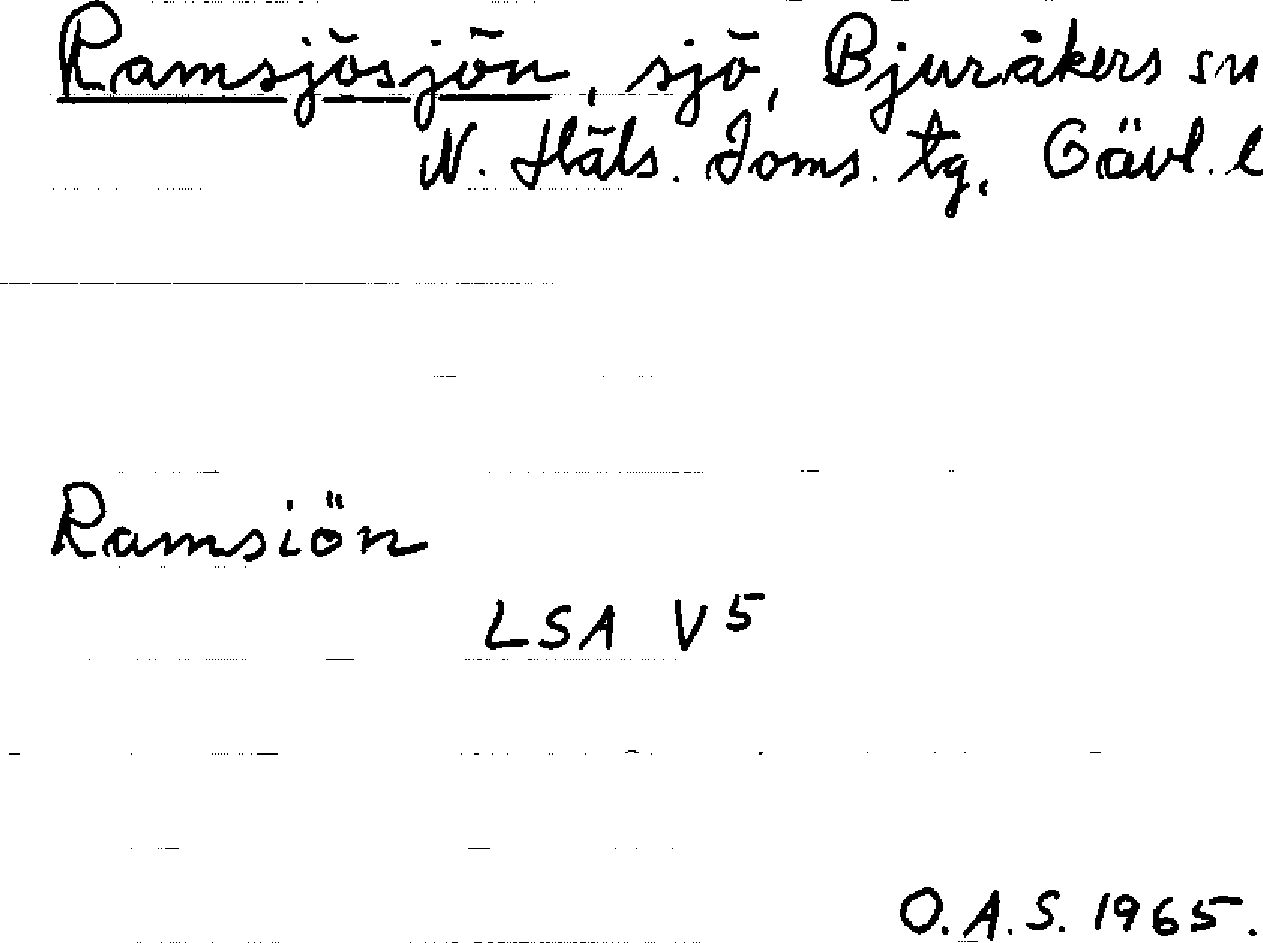 Ramsjösjön, sjö, Bjuråkers sn
N. Häls. Doms. tg. Gävl. l
Ramsiön
LSA V5
O.A.S. 1965.